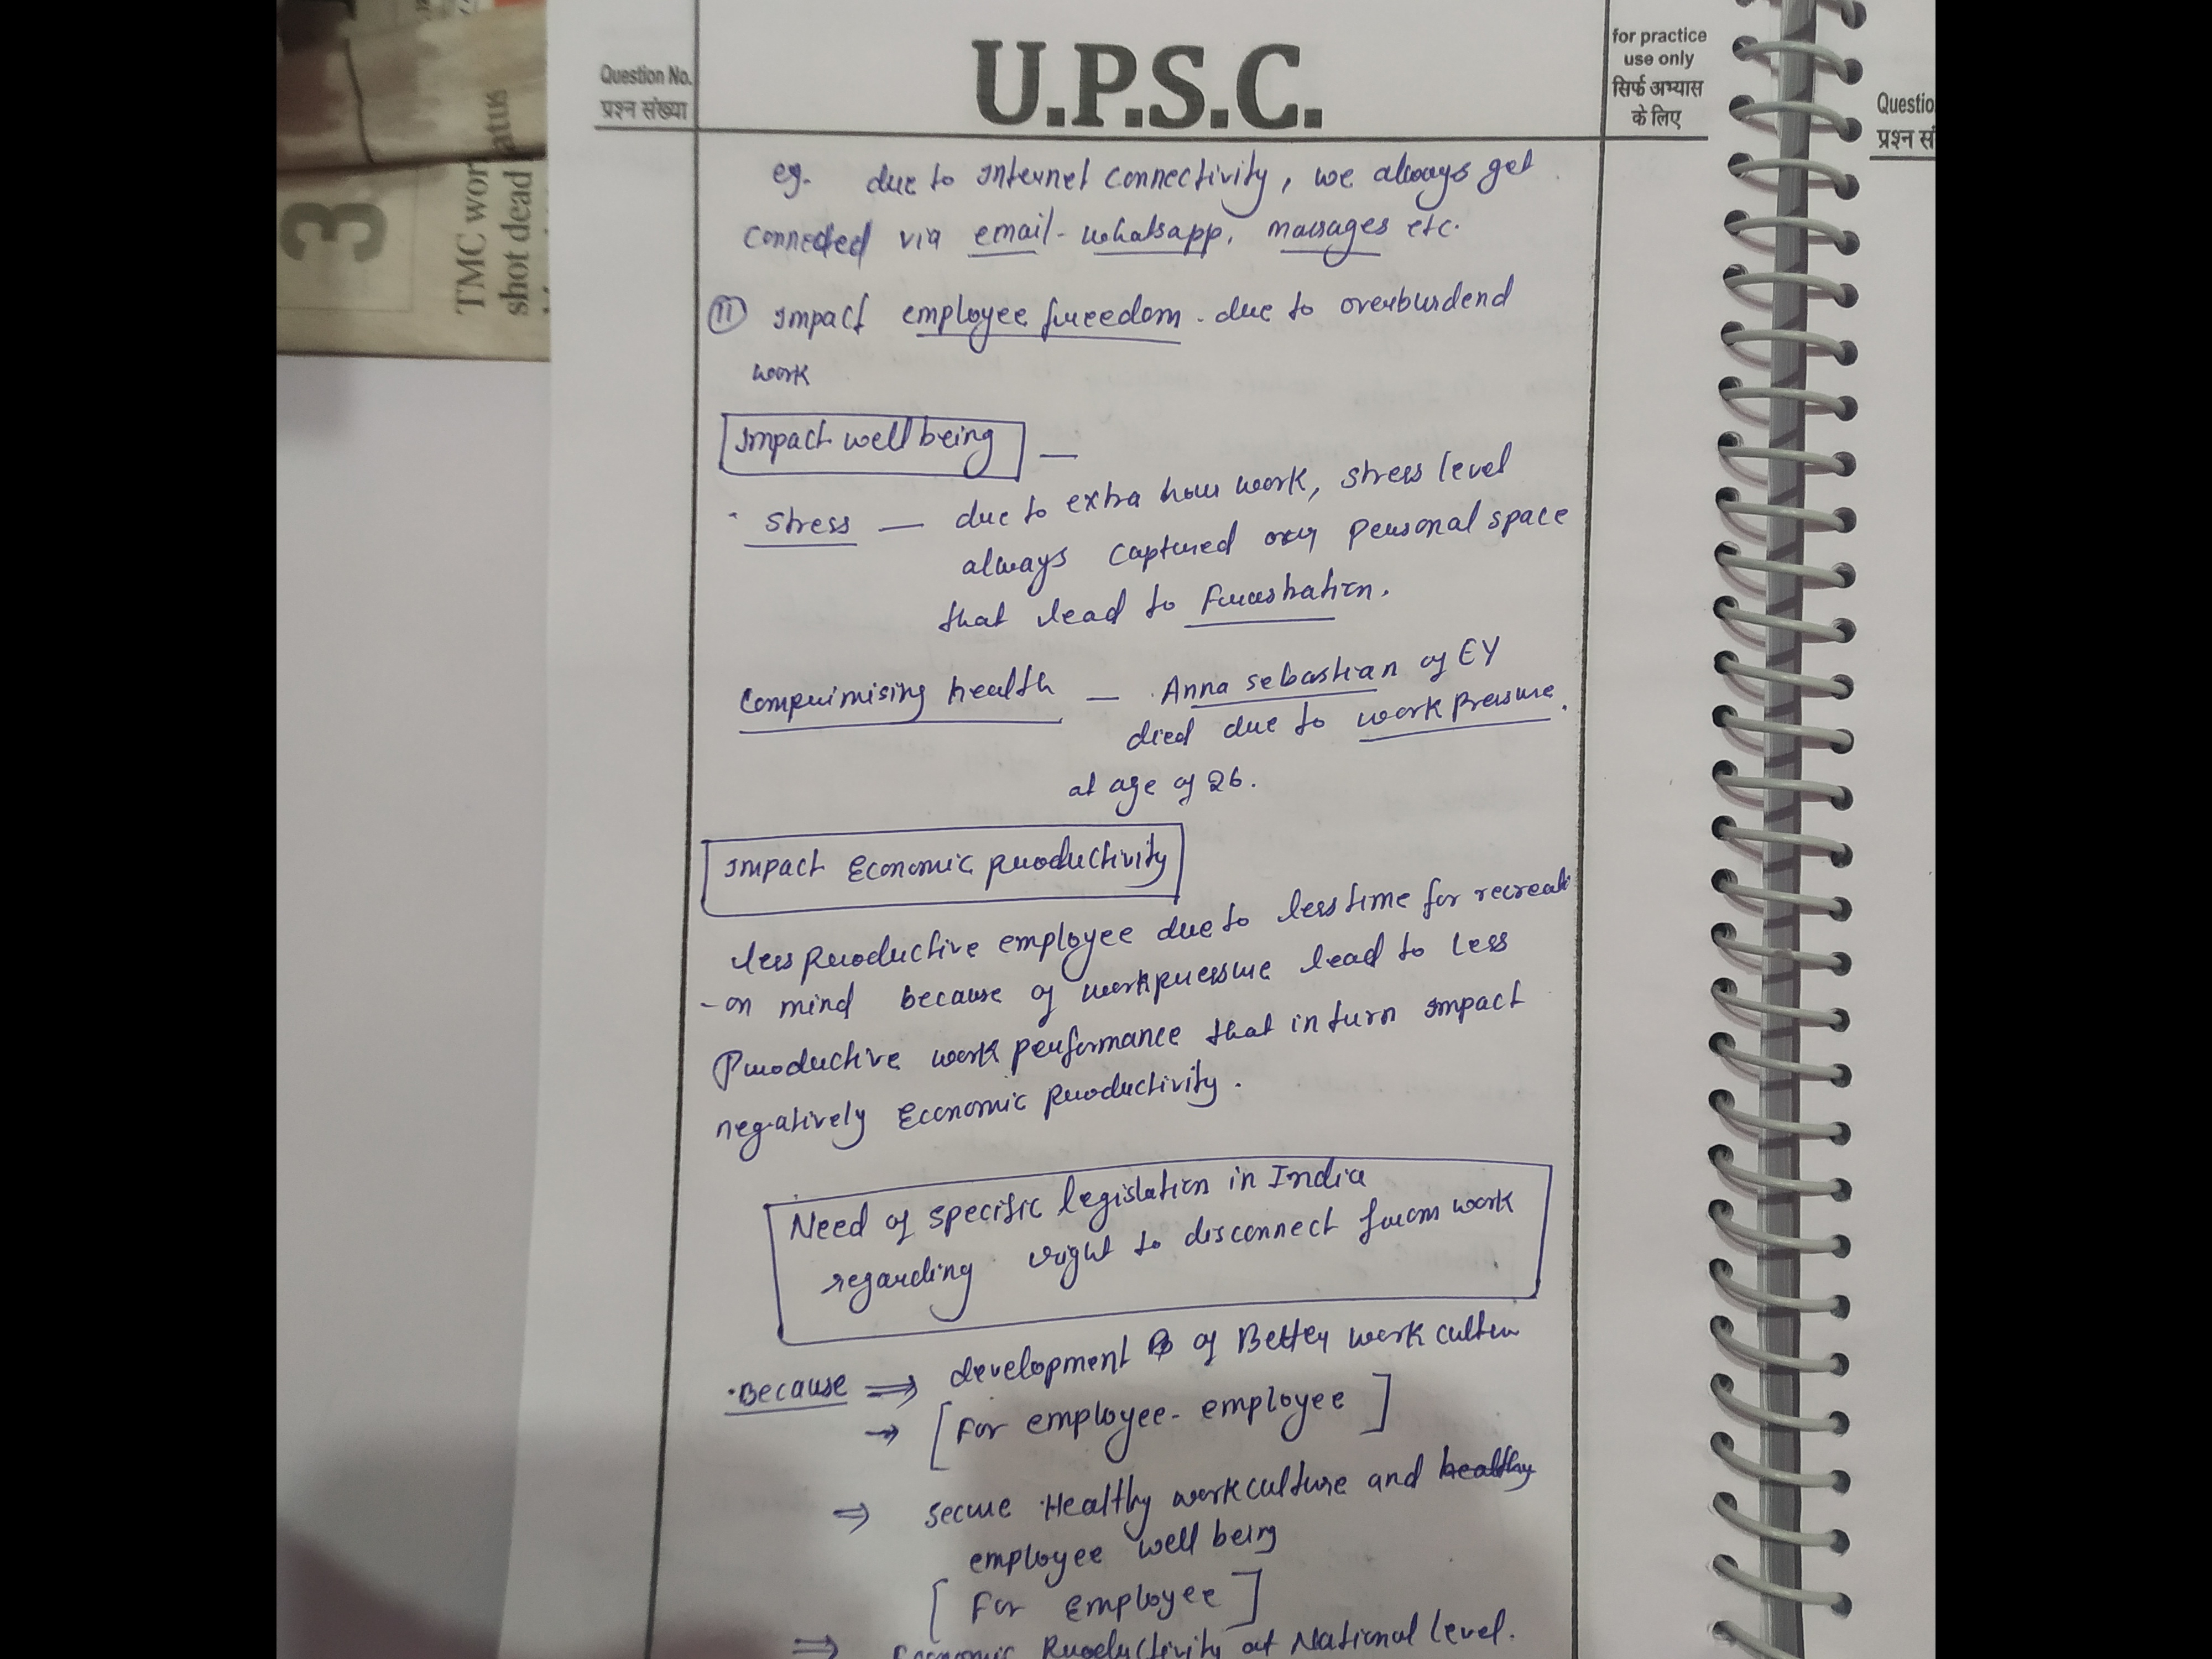 3
TMC wor
shot dead
atus
Question No.
प्रश्न संख्या
U.P.S.C.
for practice
use only
सिर्फ अभ्यास
के लिए
Questio
प्रश्न सं
eg. due to Internet connectivity, we always get
connected via email - whatsapp, massages etc.
(II) Impact employee freedom. due to overburdend
work
Impact well being —
• Stress — due to extra hour work, stress level
always captured our personal space
that lead to Frustration.
Comprimising health — Anna sebastian of EY
died due to work pressure.
at age of 26.
Impact Economic productivity
less productive employee due to less time for recreati
-on mind because of work pressure lead to less
productive work performance that in turn impact
negatively Economic productivity.
Need of specific legislation in India
regarding right to disconnect from work
• Because ⇒ development of Better work cultur
→ [For employee - employee]
⇒ secure Healthy work culture and healthy
employee well being
[For employee]
⇒ Economic Productivity at National level.